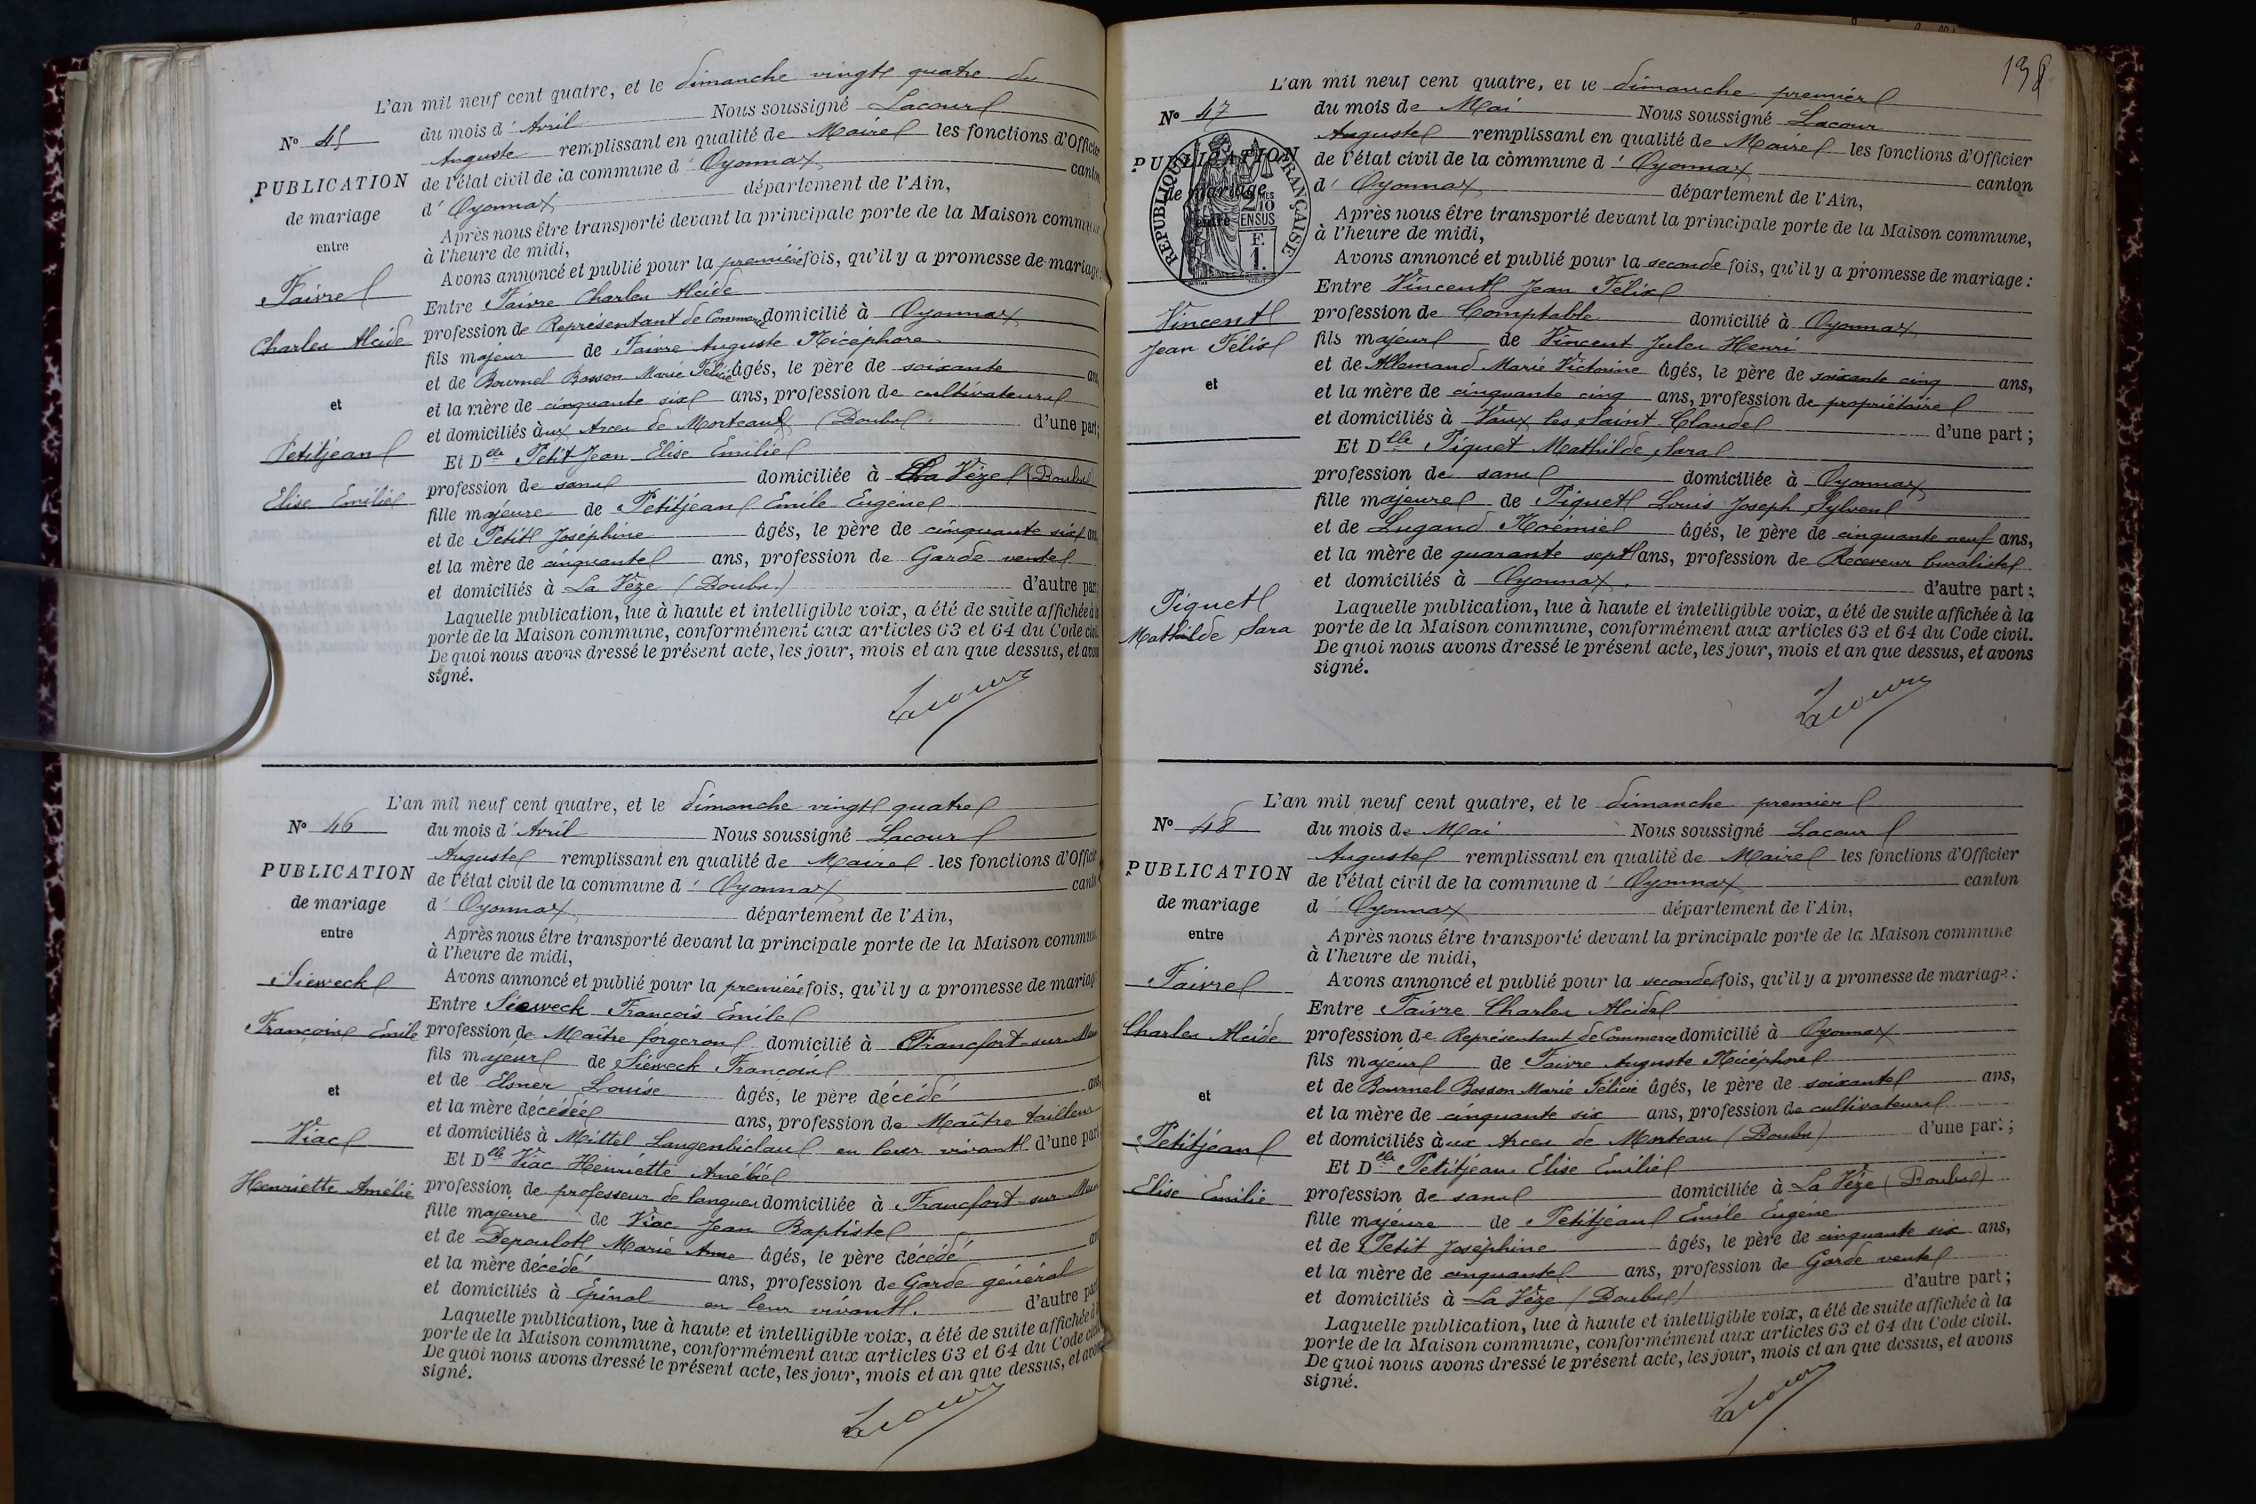 L'an mil neuf cent quatre, et le dimanche vingt quatre du
N° 45
du mois d' Avril Nous soussigné Lacour
Auguste remplissant en qualité de Maire les fonctions d'Officier
PUBLICATION
de l'état civil de la commune d' Oyonnax canton
de mariage
d' Oyonnax département de l'Ain,
entre
Après nous être transporté devant la principale porte de la Maison commune
à l'heure de midi,
Avons annoncé et publié pour la première fois, qu'il y a promesse de mariage:
Faivre
Entre Faivre Charles Alcide
Charles Alcide
profession de Représentant de Commerce domicilié à Oyonnax
fils majeur de Faivre Auguste Nicéphore
et de Bournel Bosson Marie Félicie âgés, le père de soixante ans,
et
et la mère de cinquante six ans, profession de cultivateurs
et domiciliés aux Arces de Morteau (Doubs) d'une part;
Petitjean
Et Dlle Petit Jean Elise Emilie
Elise Emilie
profession de sans domiciliée à La Vèze (Doubs)
fille majeure de Petitjean Emile Eugène
et de Petit Joséphine âgés, le père de cinquante six ans,
et la mère de cinquante ans, profession de Garde vente
et domiciliés à La Vèze (Doubs) d'autre part;
Laquelle publication, lue à haute et intelligible voix, a été de suite affichée à la
porte de la Maison commune, conformément aux articles 63 et 64 du Code civil.
De quoi nous avons dressé le présent acte, les jour, mois et an que dessus, et avons
signé.
Lacour
L'an mil neuf cent quatre, et le dimanche vingt quatre
N° 46
du mois d' Avril Nous soussigné Lacour
Auguste remplissant en qualité de Maire les fonctions d'Officier
PUBLICATION
de l'état civil de la commune d' Oyonnax canton
de mariage
d' Oyonnax département de l'Ain,
entre
Après nous être transporté devant la principale porte de la Maison commune
à l'heure de midi,
Sieweck
Avons annoncé et publié pour la première fois, qu'il y a promesse de mariage
Entre Sieweck François Emile
François Emile
profession de Maître forgeron domicilié à Francfort-sur-Mein
fils majeur de Sieweck François
et de Elsner Louise âgés, le père décédé ans,
et
et la mère décédée ans, profession de Maître tailleur
et domiciliés à Mittel Langenbielau en leur vivant d'une part
Viac
Et Dlle Viac Henriette Amélie
Henriette Amélie
profession de professeur de langues domiciliée à Francfort-sur Mein
fille majeure de Viac Jean Baptiste
et de Depoulot Marie Anne âgés, le père décédé ans
et la mère décédé ans, profession de Garde général
et domiciliés à Epinal en leur vivant. d'autre part
Laquelle publication, lue à haute et intelligible voix, a été de suite affichée à la
porte de la Maison commune, conformément aux articles 63 et 64 du Code civil
De quoi nous avons dressé le présent acte, les jour, mois et an que dessus, et avons
signé.
Lacour
138
L'an mil neuf cent quatre, et le dimanche premier
N° 47
du mois de Mai Nous soussigné Lacour
Auguste remplissant en qualité de Maire les fonctions d'Officier
PUBLICATION
de l'état civil de la commune d' Oyonnax canton
de mariage
d' Oyonnax département de l'Ain,
entre
RÉPUBLIQUE FRANÇAISE
2/10 EN SUS
F. 1.
Après nous être transporté devant la principale porte de la Maison commune,
à l'heure de midi,
Avons annoncé et publié pour la seconde fois, qu'il y a promesse de mariage:
Entre Vincent Jean Félix
Vincent
Jean Félix
profession de Comptable domicilié à Oyonnax
fils majeur de Vincent Jules Henri
et
et de Allemand Marie Victorine âgés, le père de soixante cinq ans,
et la mère de cinquante cinq ans, profession de propriétaire
et domiciliés à Vaux les Saint Claude d'une part;
Et Dlle Piquet Mathilde Sara
profession de sans domiciliée à Oyonnax
fille majeure de Piquet Louis Joseph Sylvent
et de Lugand Noémie âgés, le père de cinquante neuf ans,
et la mère de quarante sept ans, profession de Receveur buraliste
et domiciliés à Oyonnax. d'autre part;
Piquet
Mathilde Sara
Laquelle publication, lue à haute et intelligible voix, a été de suite affichée à la
porte de la Maison commune, conformément aux articles 63 et 64 du Code civil.
De quoi nous avons dressé le présent acte, les jour, mois et an que dessus, et avons
signé.
Lacour
L'an mil neuf cent quatre, et le dimanche premier
N° 48
du mois de Mai Nous soussigné Lacour
Auguste remplissant en qualité de Maire les fonctions d'Officier
PUBLICATION
de l'état civil de la commune d' Oyonnax canton
de mariage
d' Oyonnax département de l'Ain,
entre
Après nous être transporté devant la principale porte de la Maison commune
à l'heure de midi,
Faivre
Avons annoncé et publié pour la seconde fois, qu'il y a promesse de mariage:
Entre Faivre Charles Alcide
Charles Alcide
profession de Représentant de Commerce domicilié à Oyonnax
fils majeur de Faivre Auguste Nicéphore
et
et de Bournel Bosson Marie Félicie âgés, le père de soixante ans,
et la mère de cinquante six ans, profession de cultivateurs
et domiciliés aux Arces de Morteau (Doubs) d'une part;
Petitjean
Et Dlle Petitjean Elise Emilie
Elise Emilie
profession de sans domiciliée à La Vèze (Doubs)
fille majeure de Petitjean Emile Eugène
et de Petit Joséphine âgés, le père de cinquante six ans,
et la mère de cinquante ans, profession de Garde vente
et domiciliés à La Vèze (Doubs) d'autre part;
Laquelle publication, lue à haute et intelligible voix, a été de suite affichée à la
porte de la Maison commune, conformément aux articles 63 et 64 du Code civil.
De quoi nous avons dressé le présent acte, les jour, mois et an que dessus, et avons
signé.
Lacour